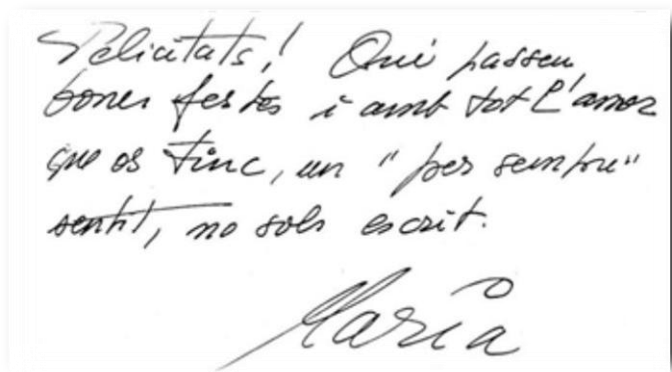 Felicitats! Qui passeu
bones festes i amb tot l'amor
que os tinc, un "per sempre"
sentit, no sols escrit.
Maria